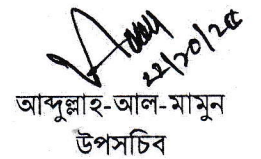 ২২/১০/২৫
আব্দুল্লাহ-আল-মামুন
উপসচিব